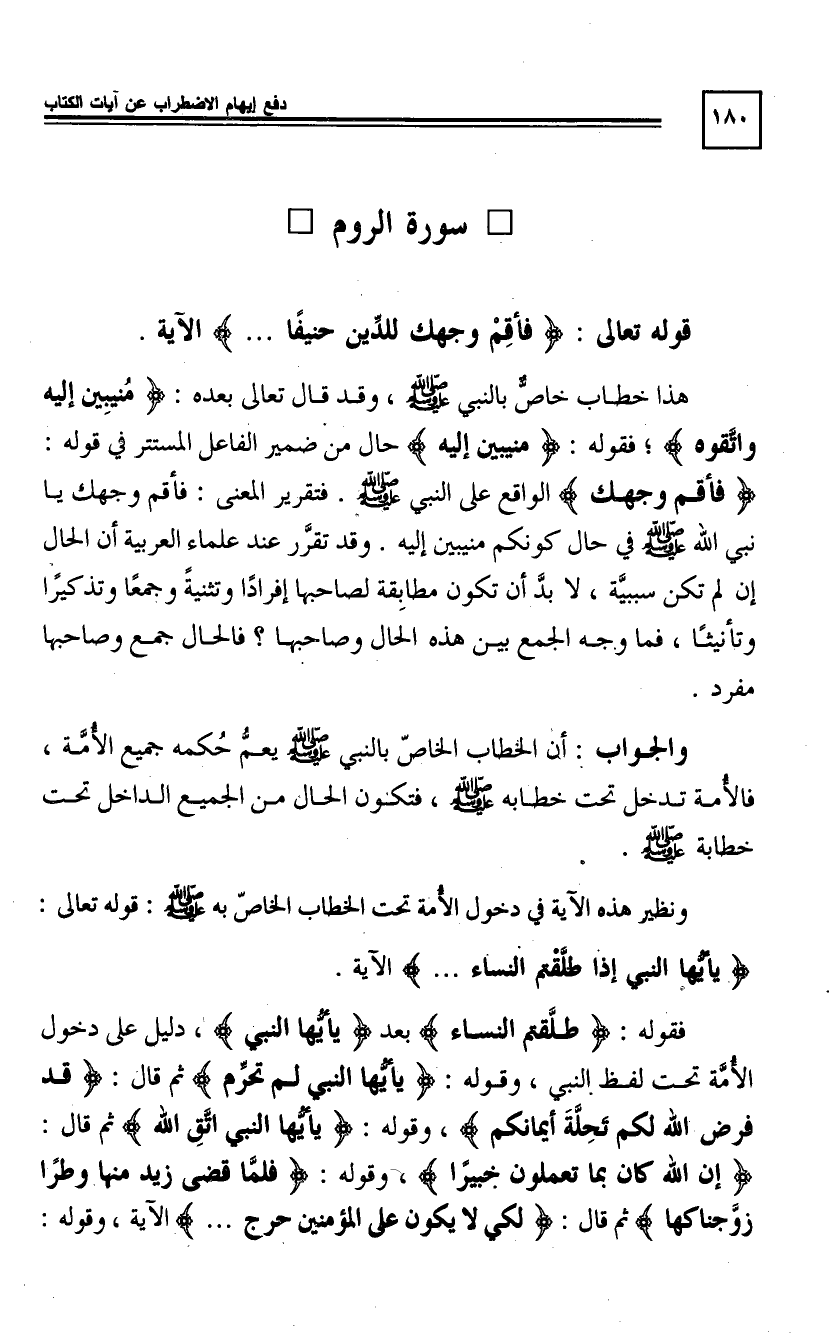 ١٨٠
دفع إيهام الاضطراب عن آيات الكتاب
□ سورة الروم □
قوله تعالى : ﴿ فأقِمْ وجهك للدِّين حنيفًا ... ﴾ الآية .
هذا خطاب خاصٌّ بالنبي ﷺ ، وقد قال تعالى بعده : ﴿ مُنيبِين إليه
واتَّقوه ﴾ ؛ فقوله : ﴿ منيبين إليه ﴾ حال من ضمير الفاعل المستتر في قوله :
﴿ فأقم وجهك ﴾ الواقع على النبي ﷺ . فتقرير المعنى : فأقم وجهك يا
نبي الله ﷺ في حال كونكم منيبين إليه . وقد تقرَّر عند علماء العربية أن الحال
إن لم تكن سببيَّة ، لا بدَّ أن تكون مطابِقة لصاحبها إفرادًا وتثنيةً وجمعًا وتذكيرًا
وتأنيثًا ، فما وجه الجمع بين هذه الحال وصاحبها ؟ فالحال جمع وصاحبها
مفرد .
والجواب : أن الخطاب الخاصّ بالنبي ﷺ يعمُّ حُكمه جميع الأُمَّة ،
فالأُمة تدخل تحت خطابه ﷺ ، فتكون الحال من الجميع الداخل تحت
خطابة ﷺ .
ونظير هذه الآية في دخول الأُمة تحت الخطاب الخاصّ به ﷺ : قوله تعالى :
﴿ يأيُّها النبي إذا طلَّقْتم النساء ... ﴾ الآية .
فقوله : ﴿ طلَّقتم النساء ﴾ بعد ﴿ يأيُّها النبي ﴾ ، دليل على دخول
الأُمَّة تحت لفظ النبي ، وقوله : ﴿ يأيُّها النبي لم تحرِّم ﴾ ثم قال : ﴿ قد
فرض الله لكم تَحِلَّةَ أيمانكم ﴾ ، وقوله : ﴿ يأيُّها النبي اتَّقِ الله ﴾ ثم قال :
﴿ إن الله كان بما تعملون خبيرًا ﴾ ، وقوله : ﴿ فلمَّا قضى زيد منها وطرًا
زوَّجناكها ﴾ ثم قال : ﴿ لكي لا يكون على المؤمنين حرج ... ﴾ الآية ، وقوله :